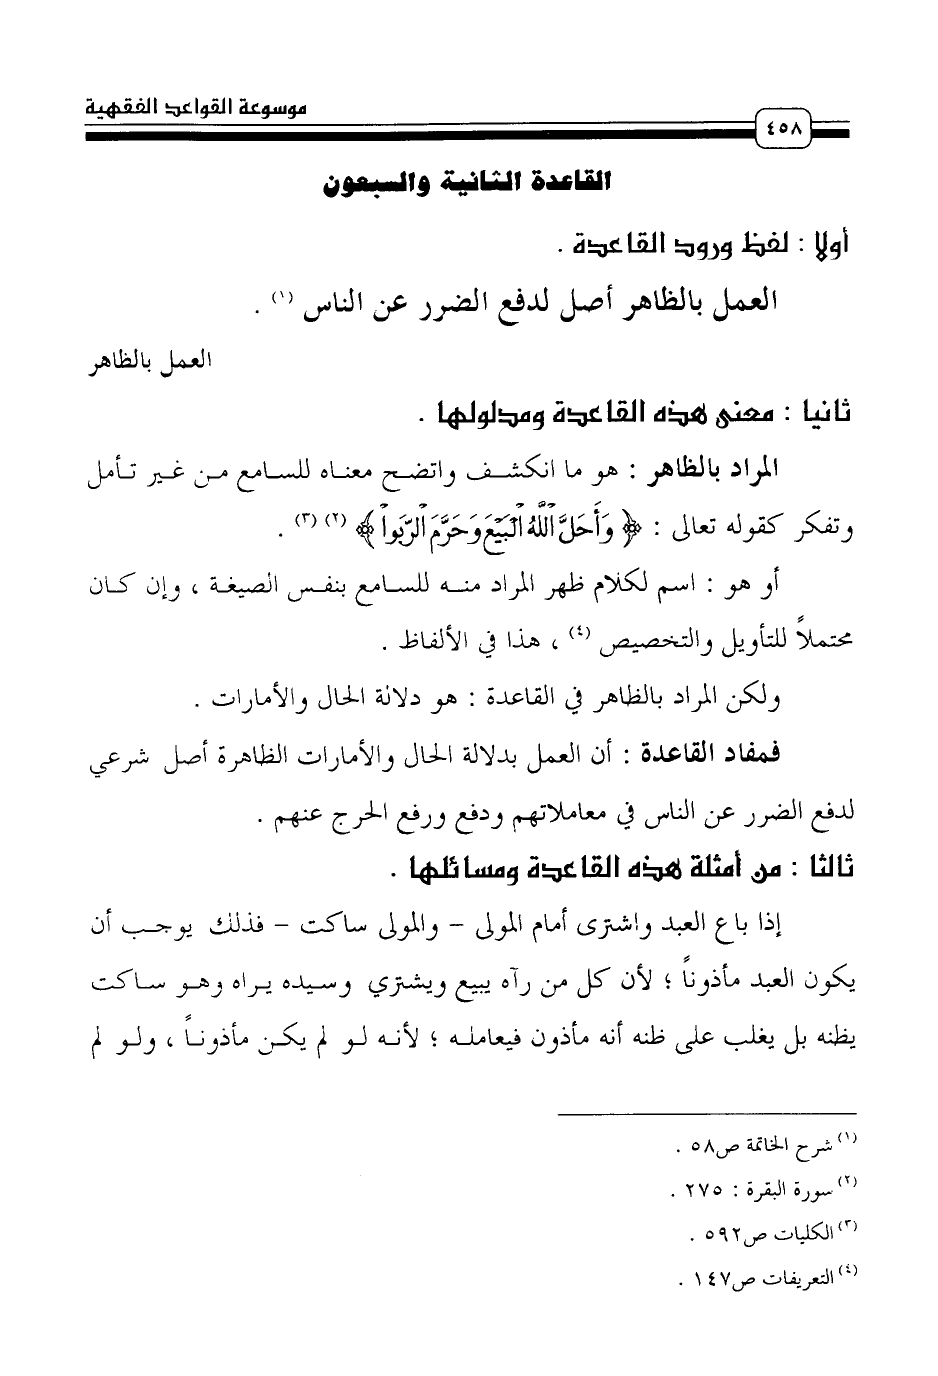 موسوعة القواعد الفقهية
٤٥٨
القاعدة الثانية والسبعون
أولا : لفظ ورود القاعدة .
العمل بالظاهر أصل لدفع الضرر عن الناس (١) .
العمل بالظاهر
ثانيا : معنى هذه القاعدة ومدلولها .
المراد بالظاهر : هو ما انكشف واتضح معناه للسامع من غير تأمل
وتفكر كقوله تعالى : ﴿ وَأَحَلَّ اللَّهُ الْبَيْعَ وَحَرَّمَ الرِّبَوٰا۟ ﴾ (٢) (٣) .
أو هو : اسم لكلام ظهر المراد منه للسامع بنفس الصيغة ، وإن كان
محتملاً للتأويل والتخصيص (٤) ، هذا في الألفاظ .
ولكن المراد بالظاهر في القاعدة : هو دلالة الحال والأمارات .
فمفاد القاعدة : أن العمل بدلالة الحال والأمارات الظاهرة أصل شرعي
لدفع الضرر عن الناس في معاملاتهم ودفع ورفع الحرج عنهم .
ثالثا : من أمثلة هذه القاعدة ومسائلها .
إذا باع العبد واشترى أمام المولى – والمولى ساكت – فذلك يوجب أن
يكون العبد مأذوناً ؛ لأن كل من رآه يبيع ويشتري وسيده يراه وهو ساكت
يظنه بل يغلب على ظنه أنه مأذون فيعامله ؛ لأنه لو لم يكن مأذوناً ، ولو لم
(١) شرح الخاتمة ص٥٨ .
(٢) سورة البقرة : ٢٧٥ .
(٣) الكليات ص٥٩٢ .
(٤) التعريفات ص١٤٧ .